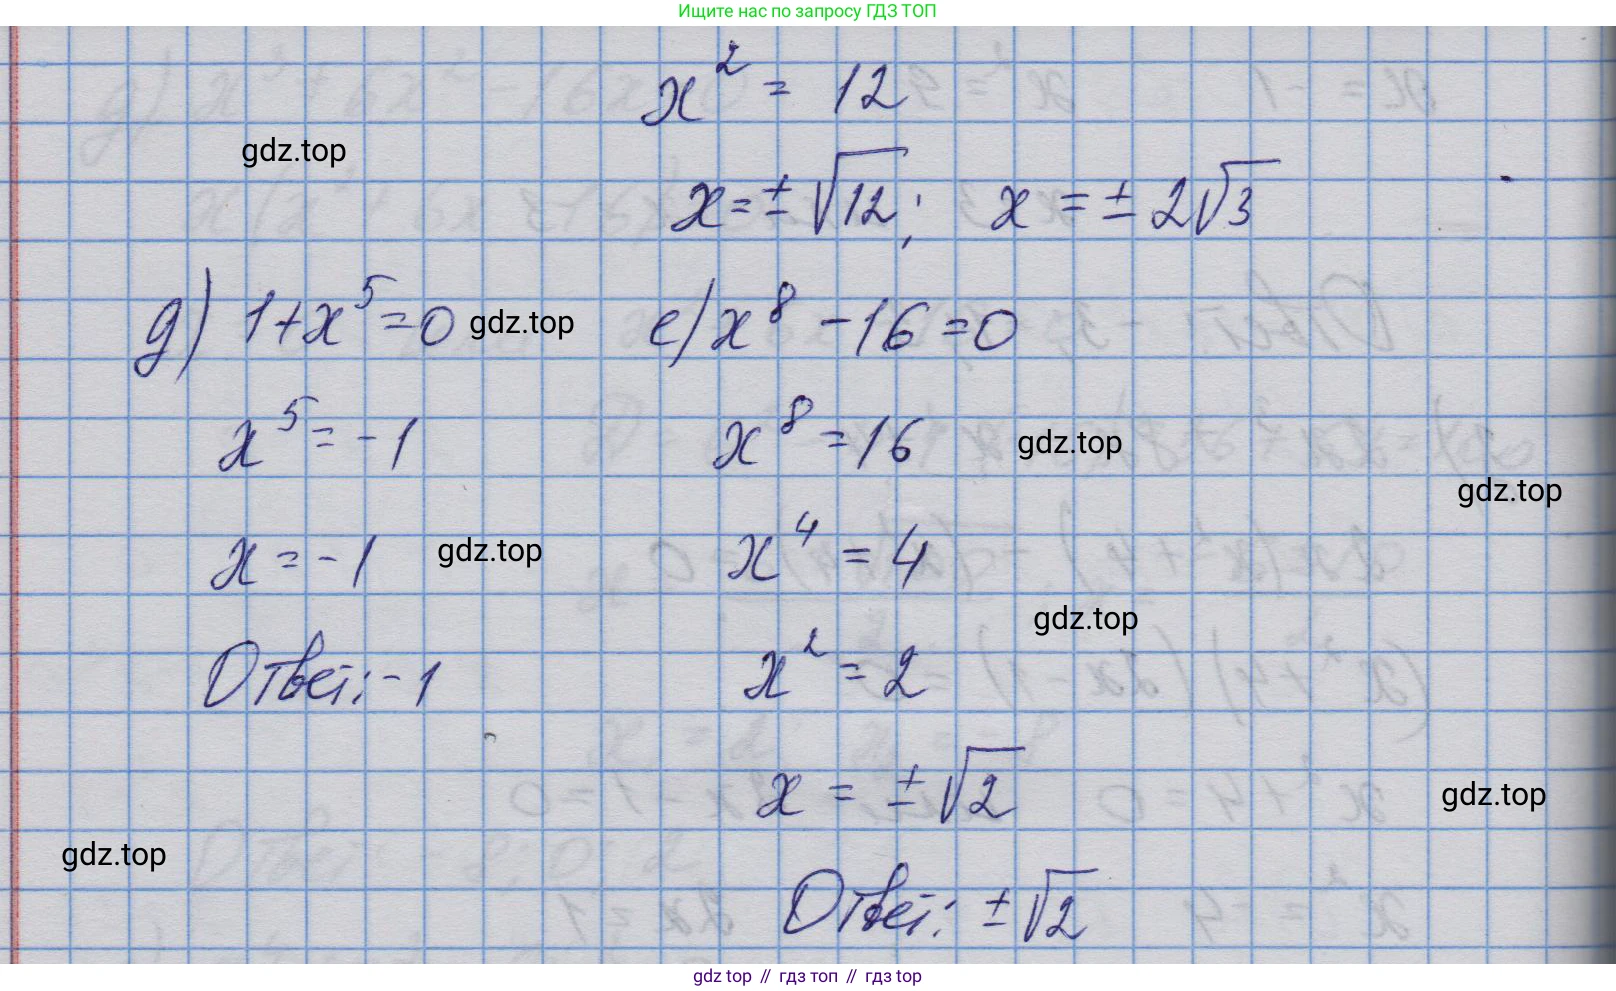 Ищите нас по запросу ГДЗ ТОП
x² = 12
gdz.top
x = ± √12; x = ± 2√3
д) 1+x⁵=0 gdz.top е) x⁸ - 16 = 0
x⁵ = -1 x⁸ = 16 gdz.top
gdz.top
x = -1 gdz.top x⁴ = 4
gdz.top
Ответ: -1 x² = 2
x = ± √2 gdz.top
gdz.top
Ответ: ± √2
gdz top // гдз топ // гдз top